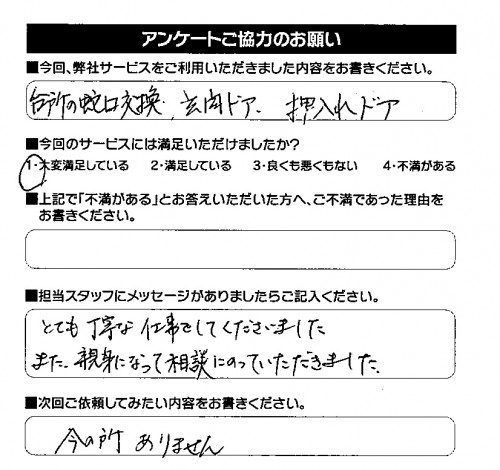 アンケートご協力のお願い
■今回、弊社サービスをご利用いただきました内容をお書きください。
台所の蛇口交換、玄関ドア、押入れドア
■今回のサービスには満足いただけましたか?
1・大変満足している 2・満足している 3・良くも悪くもない 4・不満がある
■上記で「不満がある」とお答えいただいた方へ、ご不満であった理由を
お書きください。
■担当スタッフにメッセージがありましたらご記入ください。
とても丁寧な仕事をしてくださいました
また、親身になって相談にのっていただきました。
■次回ご依頼してみたい内容をお書きください。
今の所ありません